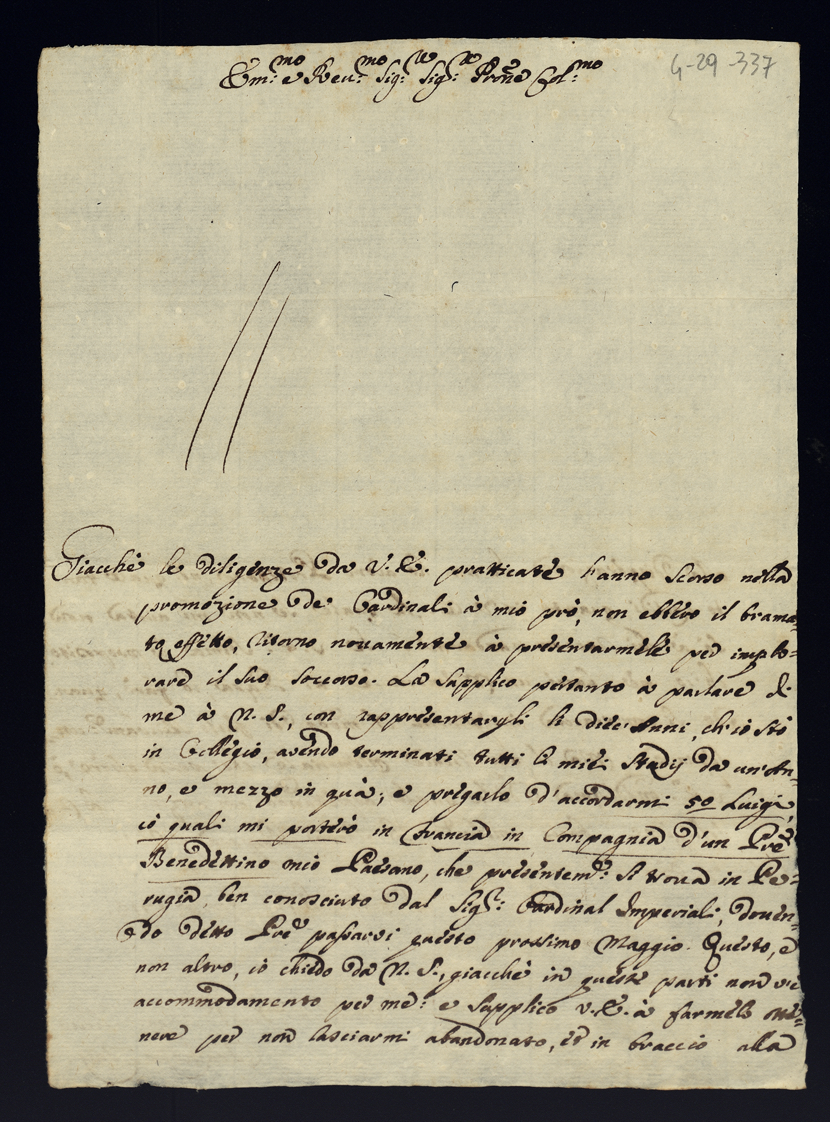 Em:mo e Rev:mo Sig:re Sig:re Prone Col:mo
4-29-337
Giacchè le diligenze da V. E. pratticate hanno scorso nella
promozione de Cardinali à mio prò, non ebbero il brama-
to effetto, ritorno novamente à presentarmele per implo-
rare il suo soccorso. La supplico pertanto à parlare di
me à N. S., con rappresentargli li dieci Anni, ch'io stò
in Collegio, avendo terminati tutti li miei Studij da un'An-
no, e mezzo in quà; e pregarlo d'accordarmi 50 Luigi,
cò quali mi porterò in Francia in Compagnia d'un Pre
Benedettino mio Paesano, che presentem:e si trova in Pe-
rugia, ben conosciuto dal Sig:r Cardinal Imperiali, doven-
do detto Pre passarvi questo prossimo Maggio. Questo, e
non altro, iò chiedo da N. S., giacchè in queste parti non v'è
accommodamento per me: e supplico V. E. à farmelo otte-
nere per non lasciarmi abandonato, et in braccio alla